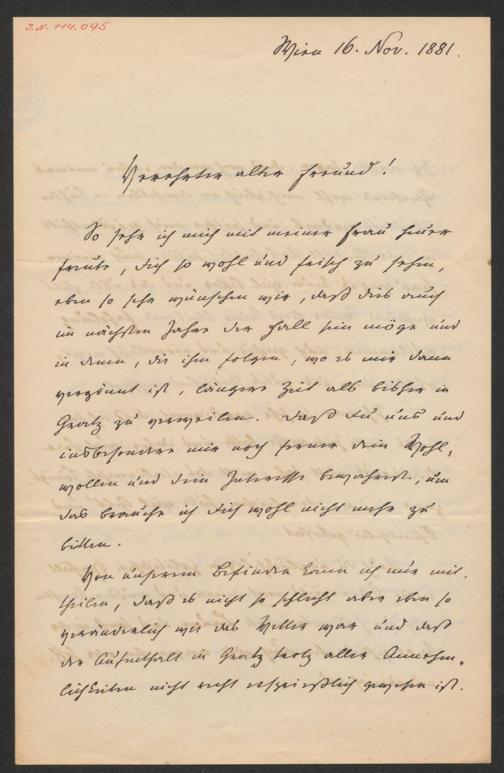 J.N. 114.095
Wien 16. Nov. 1881.
Verehrter alter Freund!
So sehr ich mich mit meiner Frau heuer
freute, Dich so wohl und frisch zu sehen,
eben so sehr wünschen wir, daß dies auch
im nächsten Jahre der Fall sein möge und
in denen, die ihm folgen, wo es mir dann
vergönnt ist, längere Zeit als bisher in
Graetz zu verweilen. Daß Du uns und
insbesondere mir noch ferner dein Wohl,
wollen und Dein Interesse bewahrest, um
das brauche ich Dich wohl nicht mehr zu
bitten.
Von unserem Befinden kann ich nur mit,
theilen, daß es nicht so schlecht aber eben so
veränderlich wie das Wetter war und daß
der Aufenthalt in Graetz trotz aller Annehm,
lichkeiten nicht recht ersprießlich gewesen ist.